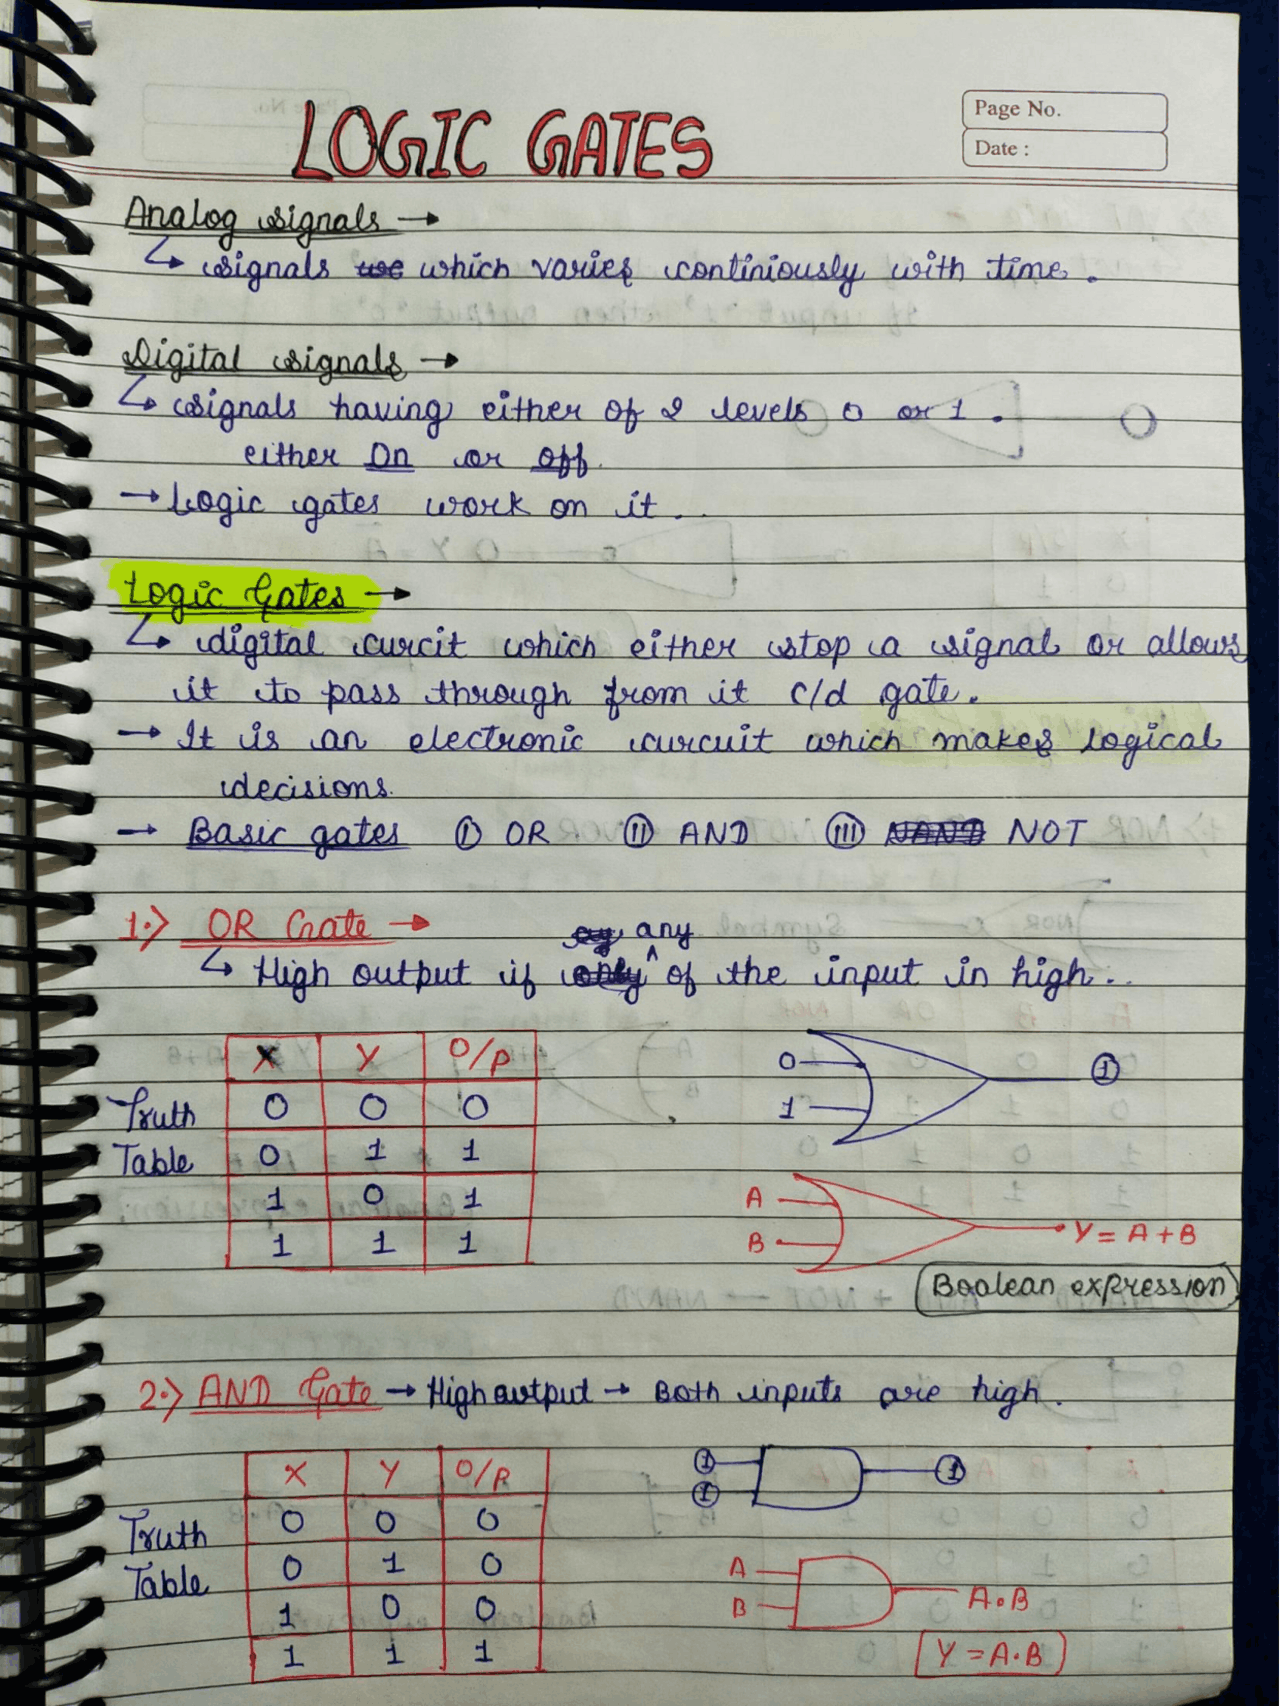 LOGIC GATES
Page No.
Date :
Analog signals →
↳ signals which varies continiously with time.
Digital signals →
↳ signals having either of 2 levels 0 or 1.
either On or Off.
→ Logic gates work on it..
Logic Gates →
↳ digital curcit which either stop a signal or allows
it to pass through from it c/d gate.
→ It is an electronic curcuit which makes logical
decisions.
→ Basic gates Ⓘ OR ⑪ AND ⑪I NAND NOT
1.) OR Gate →
any
↳ High output if only ^ of the input in high..
X Y O/P
Truth 0 0 0
Table 0 1 1
1 0 1
1 1 1
0
1
①
A
B
Y = A + B
Boolean expression
2.) AND Gate → High output → Both inputs are high.
X Y O/P
Truth 0 0 0
Table 0 1 0
1 0 0
1 1 1
①
①
①
A
B
A.B
Y = A.B